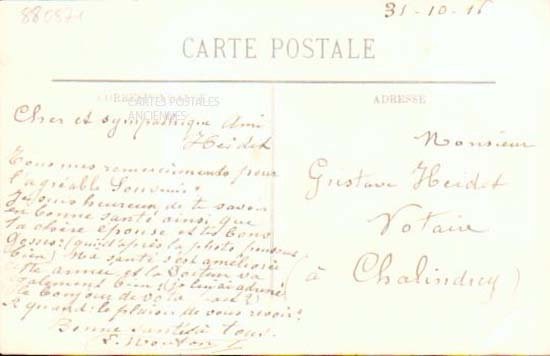 880871
31-10-16
CARTE POSTALE
CORRESPONDANCE
CARTES POSTALES
ANCIENNES
ADRESSE
Cher et sympathique Ami
Heidet
Tous mes remerciements pour
l'agréable Souvenir.
Je suis heureux de te savoir
en bonne santé ainsi que
ta chère épouse et tes bons
Gosses: (qui d'après la photo poussent
bien) Ma santé s'est améliorée
cette année, et la Doctoresse va
également bien
le bonjour de
A quand: le plaisir de vous revoir?
Bonne santé à tous.
Monsieur
Gustave Heidet
Notaire
(à Chalindrey)